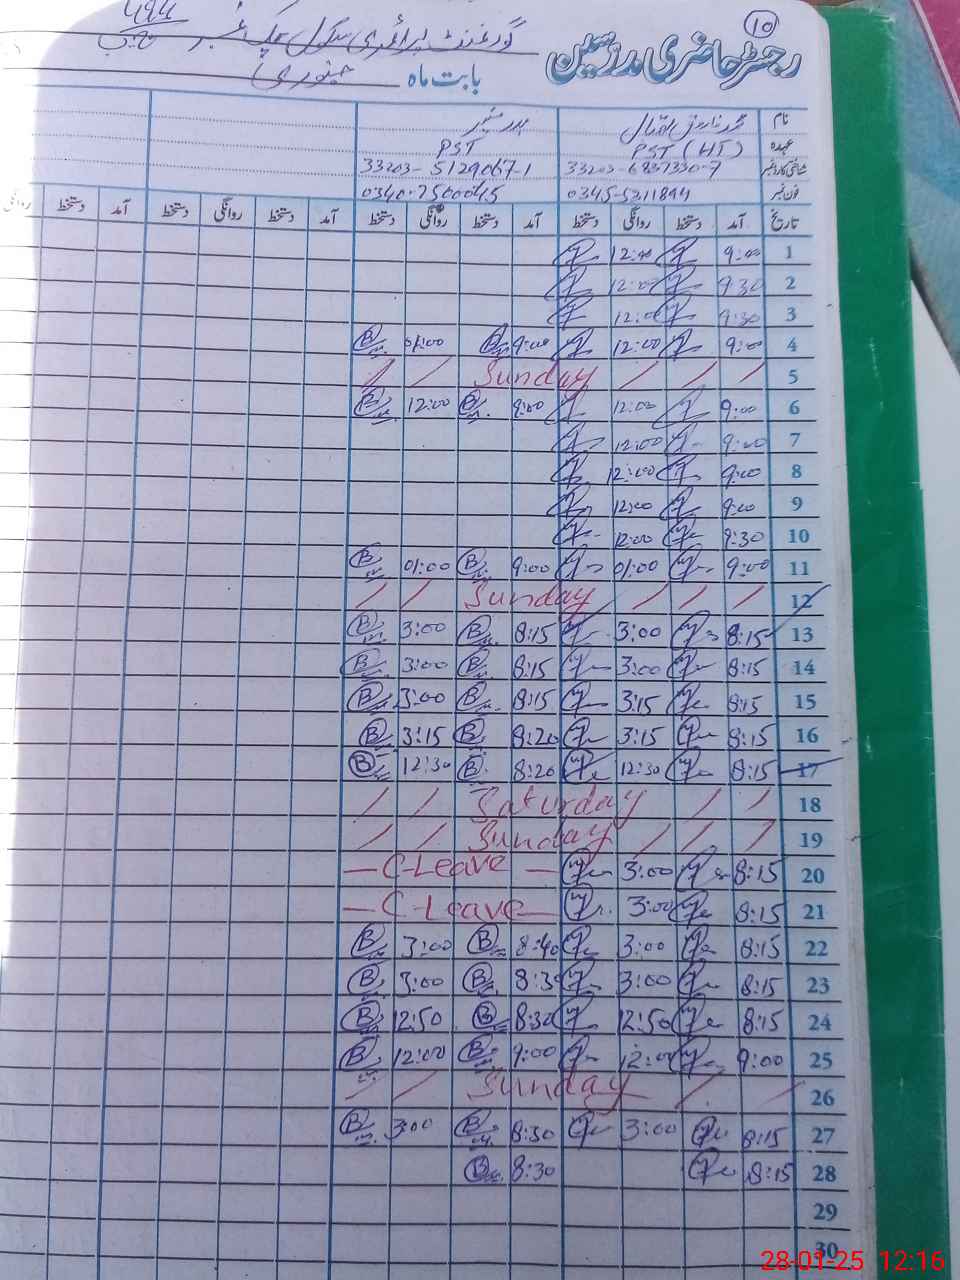 10
رجسٹر حاضری مدرسین
گورنمنٹ پرائمری سکول چک نمبر 494 ج ب
بابت ماہ جنوری
نام
عہدہ PST (HT) PST
شناختی کارڈ نمبر 33203-5129067-1
فون نمبر 0345-5211894 0340-7500045
تاریخ آمد دستخط روانگی دستخط آمد دستخط روانگی دستخط آمد دستخط روانگی دستخط آمد دستخط روانگی
1 9:00 12:00
2 9:30 12:00
3 9:30 12:00
4 9:00 12:00 9:00 01:00
5 Sunday
6 9:00 12:00 9:00 12:00
7 9:00 12:00
8 9:00 12:00
9 9:00 12:00
10 9:30 12:00
11 9:00 01:00 9:00 01:00
12 Sunday
13 8:15 3:00 8:15 3:00
14 8:15 3:00 8:15 3:00
15 8:15 3:15 8:15 3:00
16 8:15 3:15 8:20 3:15
17 8:15 12:30 8:20 12:30
18 Saturday
19 Sunday
20 8:15 3:00 C-Leave
21 8:15 3:00 C-Leave
22 8:15 3:00 8:40 3:00
23 8:15 3:00 8:30 3:00
24 8:15 12:50 8:30 12:50
25 9:00 12:00 9:00 12:00
26 Sunday
27 8:15 3:00 8:30 3:00
28 8:15 8:30
29
30
28-01-25 12:16